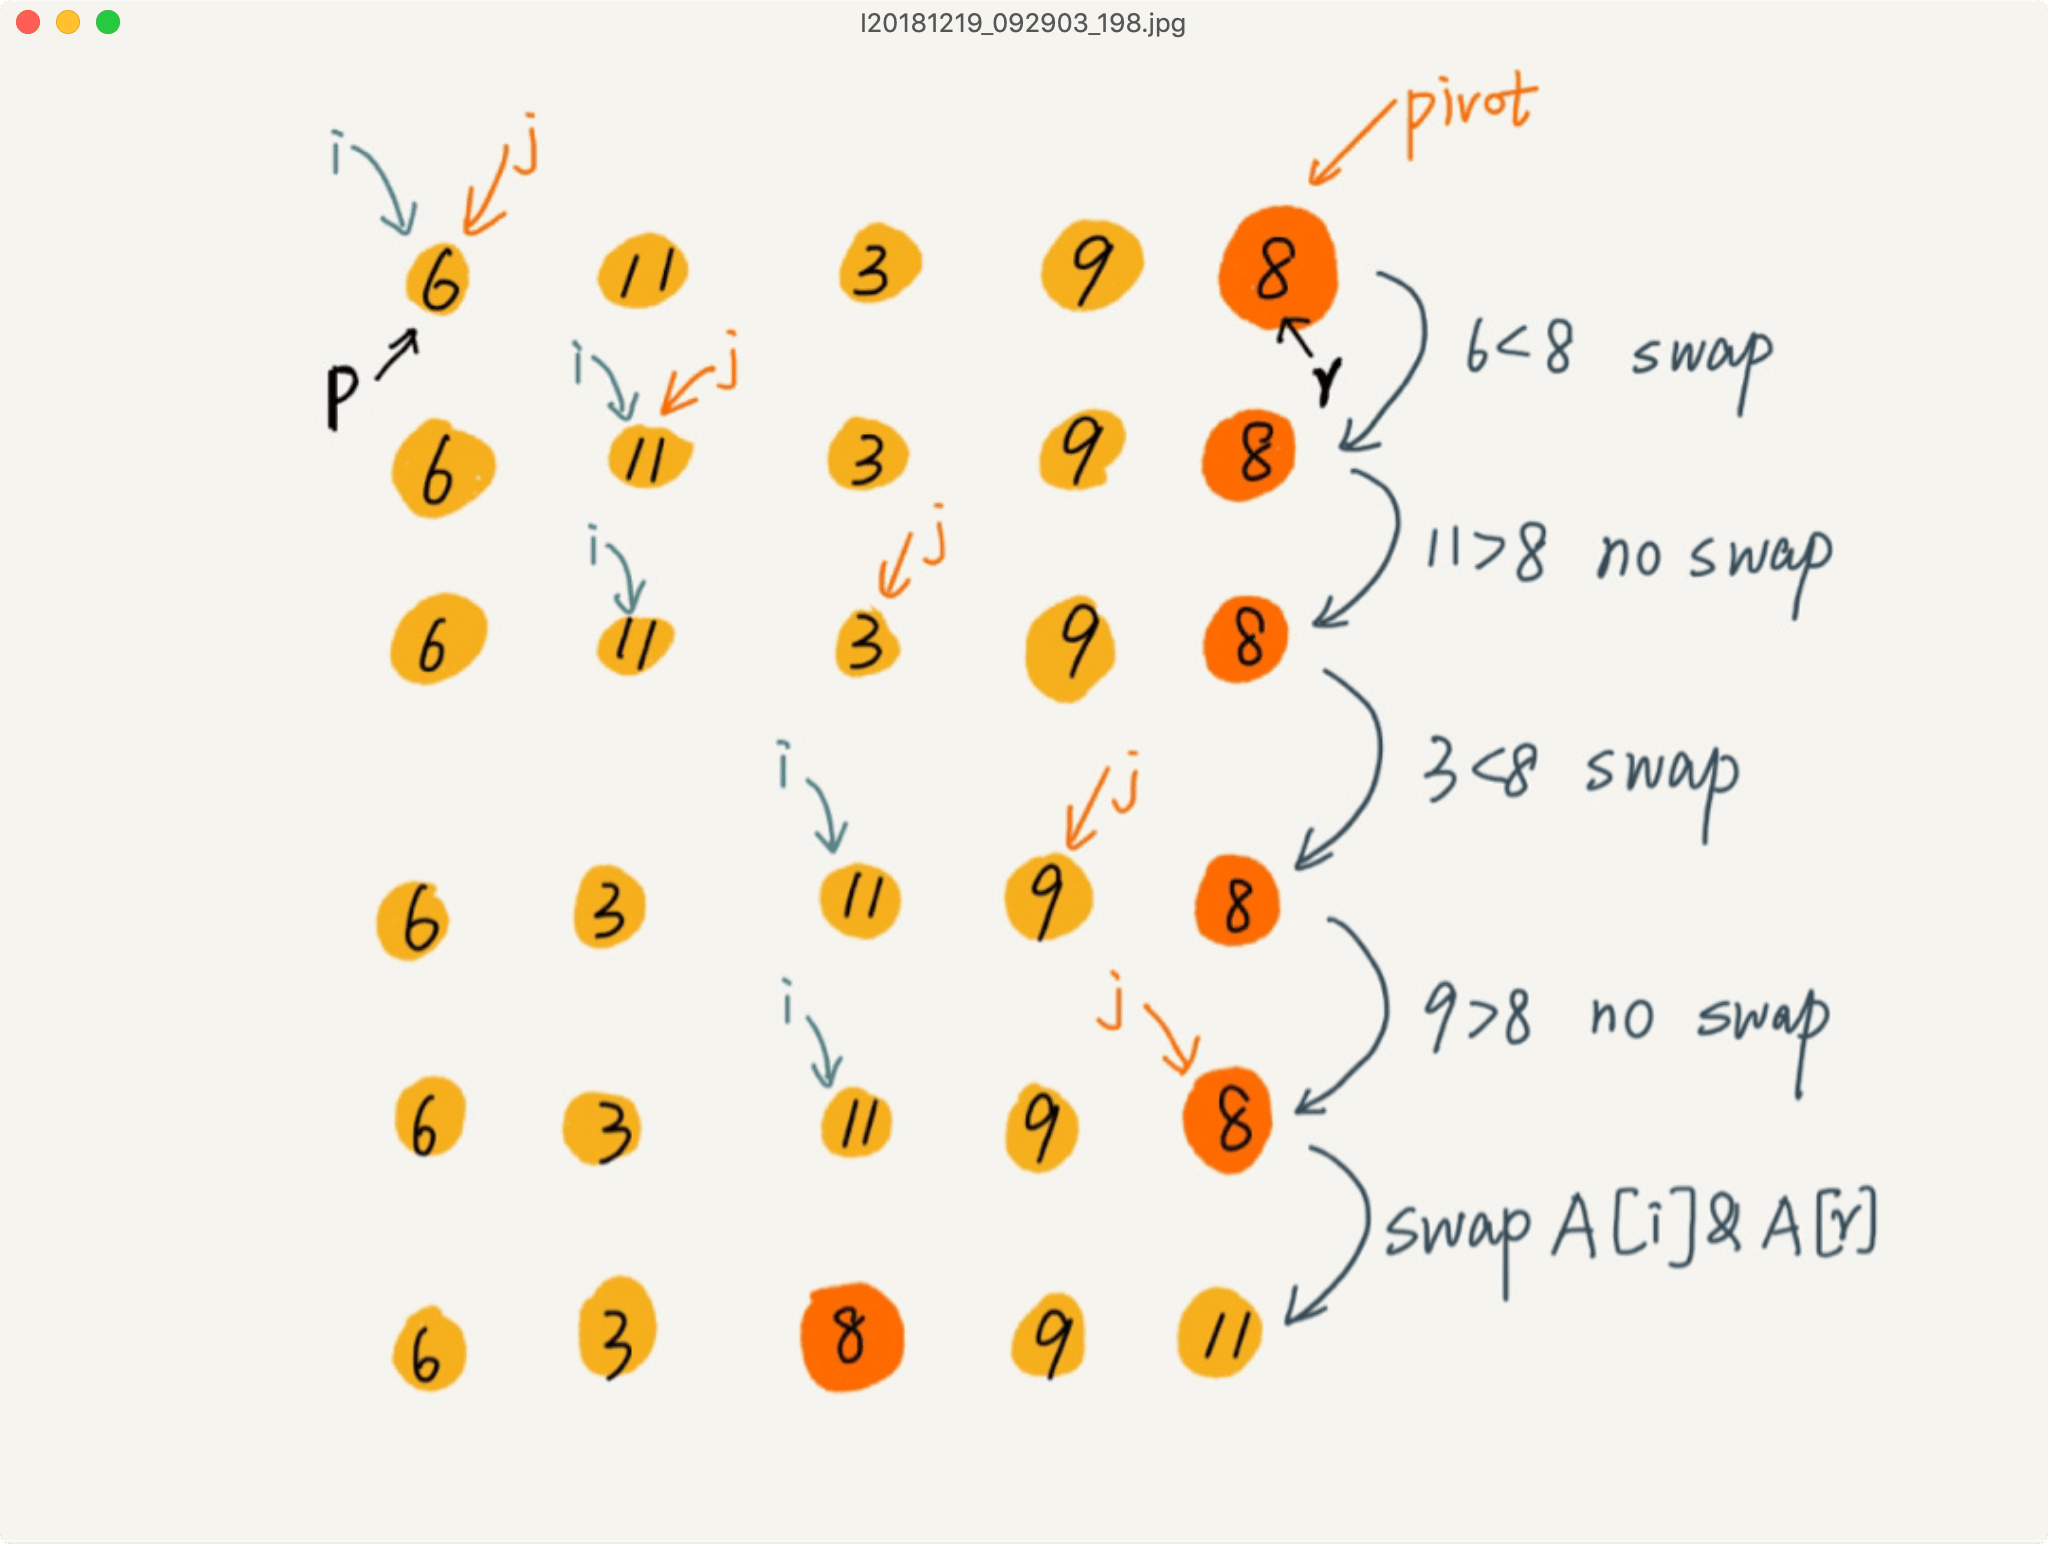 I20181219_092903_198.jpg
pivot
i j
6 11 3 9 8
p r
6<8 swap
i j
6 11 3 9 8
11>8 no swap
i j
6 11 3 9 8
3<8 swap
i j
6 3 11 9 8
9>8 no swap
i j
6 3 11 9 8
swap A[i]&A[r]
6 3 8 9 11